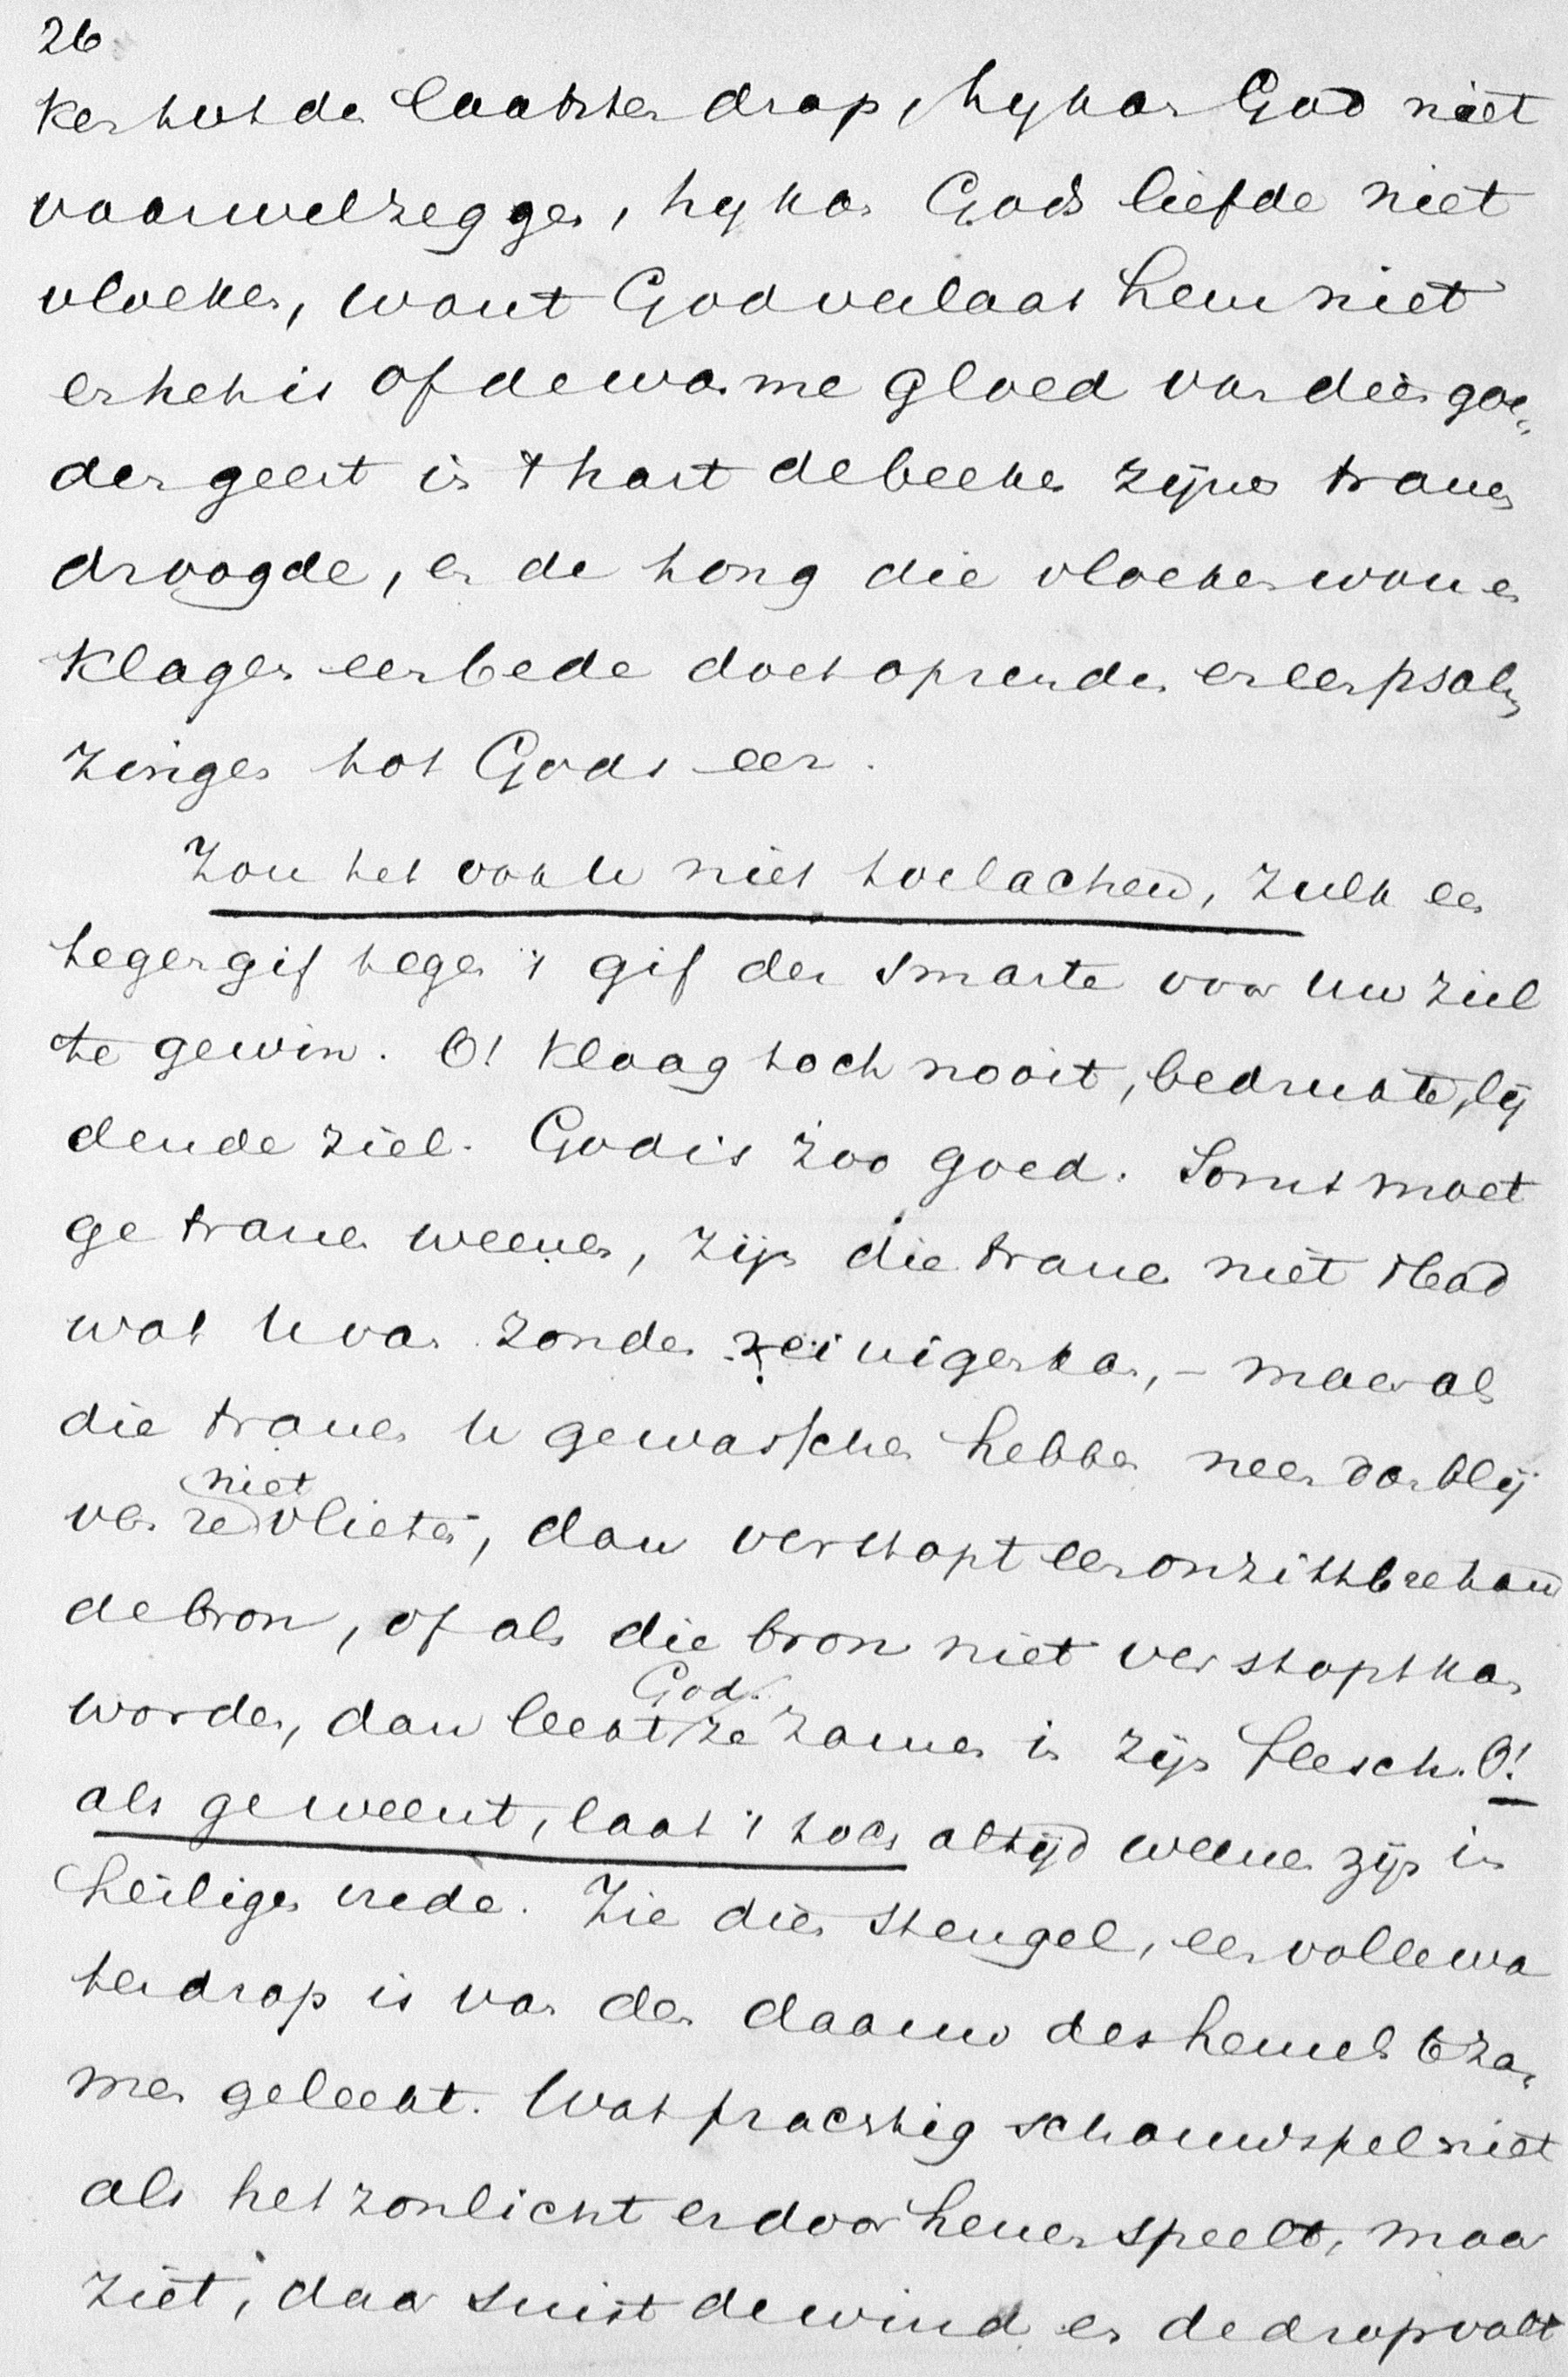 26
ken tot den laatsten drop, hy kan God niet
vaarwel zeggen, hy kan Gods liefde niet
vloeken, want God verlaat hem niet
en het is of de warme gloed van dien goe„
den geest in 't hart de beeken zijner tranen
droogde, en de tong die vloeken wou en
klagen een bede doet opzenden en een psalm
zingen tot Gods eer.
Zou het ook U niet toelachen, zulk een
tegengif tegen 't gif der smarte voor Uw ziel
te gewin. O! klaag toch nooit, bedrukte, lij
dende ziel. God is zoo goed. Soms moet
ge tranen weenen, zijn die tranen niet 't bad
wat U van zonden reinigen kan, – maar als
die tranen U gewasschen hebben neen dan blij
ven ze niet vlieten, dan verstopt een onzichtbre hand
de bron, of als die bron niet verstopt kan
worden, dan leekt God ze zamen in zijn flesch. O!
als geweent, laat 't toch altijd weenen zijn in
heiligen vrede. Zie dien stengel, een volle wa
terdrop is van den daauw des hemels te za„
men geleekt. Wat prachtig schouwspel niet
als het zonlicht er door henen speelt, maar
ziet, daar suist de wind en de drop valt